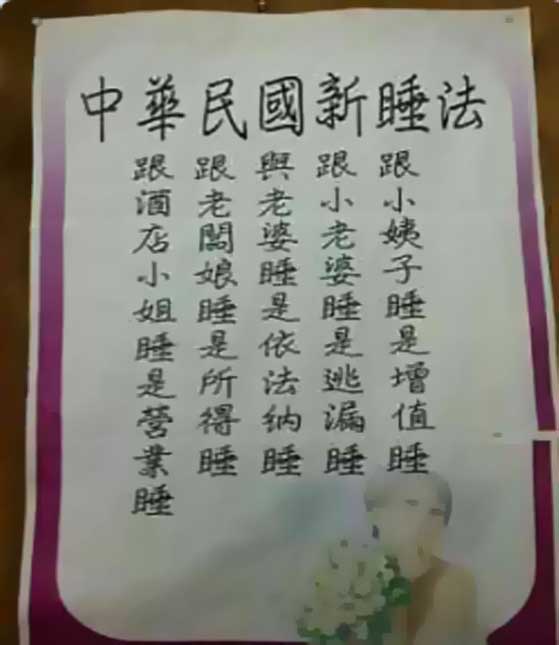 中華民國新睡法
跟小姨子睡是增值睡
跟小老婆睡是逃漏睡
與老婆睡是依法納睡
跟老闆娘睡是所得睡
跟酒店小姐睡是營業睡